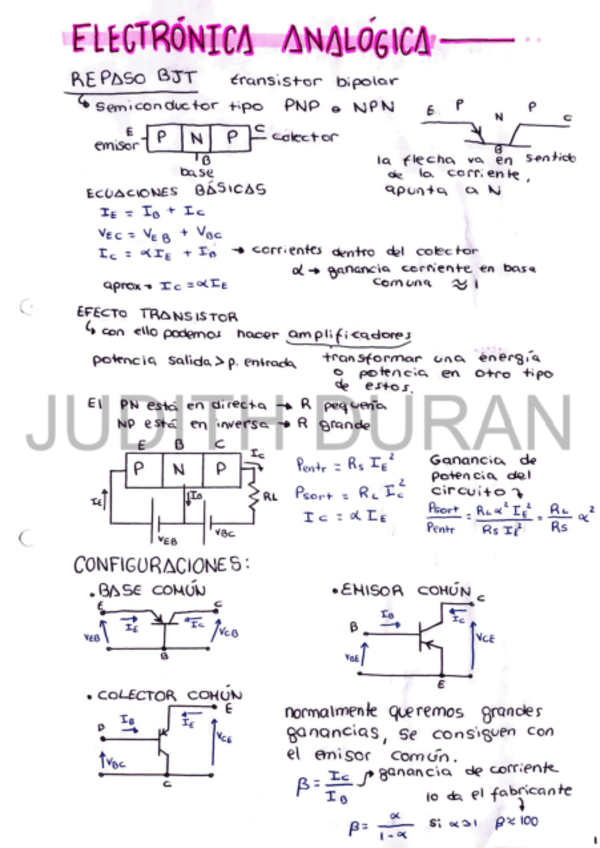 ELECTRÓNICA ANALÓGICA
REPASO BJT transistor bipolar
↳ semiconductor tipo PNP o NPN
E P N P C
B
emisor E P N P C colector
B
base
la flecha va en sentido
de la corriente,
apunta a N
ECUACIONES BÁSICAS
IE = IB + IC
VEC = VEB + VBC
IC = αIE + IB → corrientes dentro del colector
α → ganancia corriente en base
comuna ≈ 1
aprox → IC = αIE
EFECTO TRANSISTOR
↳ con ello podemos hacer amplificadores
potencia salida > p. entrada
transformar una energía
o potencia en otro tipo
de estos.
El PN está en directa → R pequeña
NP está en inversa → R grande
JUDITH DURAN
E B C
P N P
IC
IE
IB
RL
VEB
VBC
Pentr = RS IE²
Psort = RL IC²
IC = α IE
Ganancia de
potencia del
circuito
Psort / Pentr = RL α² IE² / RS IE² = RL / RS α²
CONFIGURACIONES:
• BASE COMÚN
E C
VEB IE IC VCB
B
• EMISOR COMÚN
C
IB IC
B
VCE
VBE
E
• COLECTOR COMÚN
E
IB IE
B
VCE
VBC
C
normalmente queremos grandes
ganancias, se consiguen con
el emisor común.
β = IC / IB ganancia de corriente
lo da el fabricante
β = α / 1-α si α≈1 β≈100
1